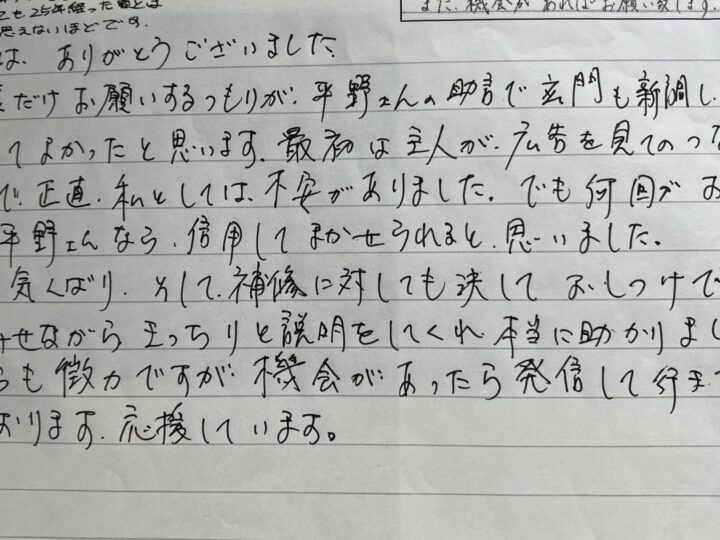 も25年経った家とは
思えないほどです。
また、機会があればお願い致します。
は、ありがとうございました。
だけお願いするつもりが、平野さんの助言で玄関も新調し
てよかったと思います。最初は主人が、広告を見てのつな
で、正直、私としては、不安がありました。でも何回かお
平野さんなら、信用してまかせられると、思いました。
気くばり、そして、補修に対しても決しておしつけで
せながらきっちりと説明をしてくれ本当に助かりまし
も微力ですが、機会があったら発信して行きた
おります。応援しています。